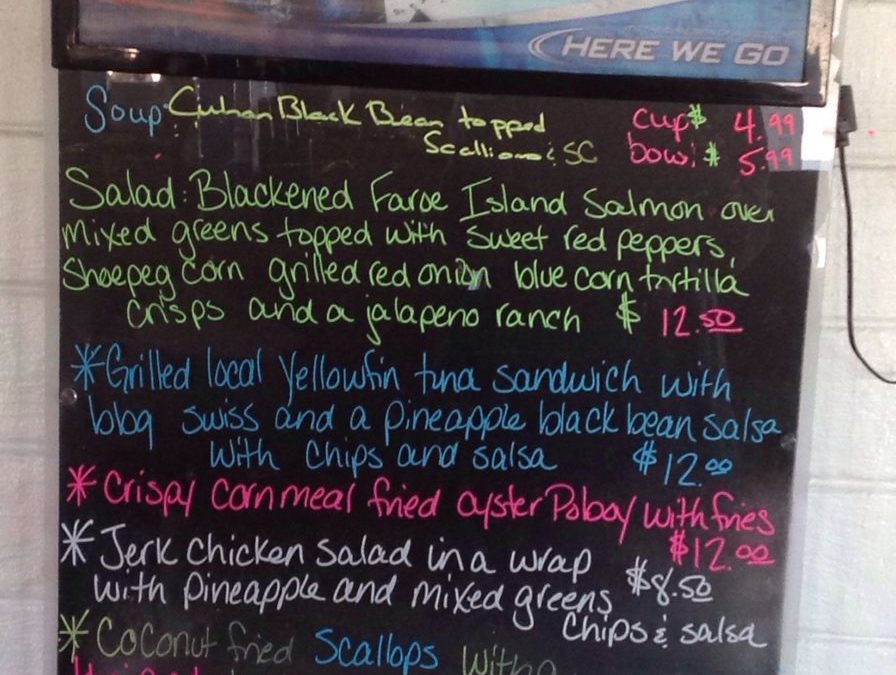 HERE WE GO
Soup: Cuban Black Bean topped cup $ 4.99
Scallions & SC bowl $ 5.99
Salad: Blackened Faroe Island Salmon over
mixed greens topped with sweet red peppers,
Shoepeg corn grilled red onion blue corn tortilla
crisps and a jalapeno ranch $ 12.50
*Grilled local Yellowfin tuna sandwich with
bbq swiss and a pineapple black bean salsa
with chips and salsa $12.00
*Crispy cornmeal fried oyster Poboy with fries
$12.00
*Jerk chicken salad in a wrap
with pineapple and mixed greens $8.50
chips & salsa
*Coconut fried Scallops with a